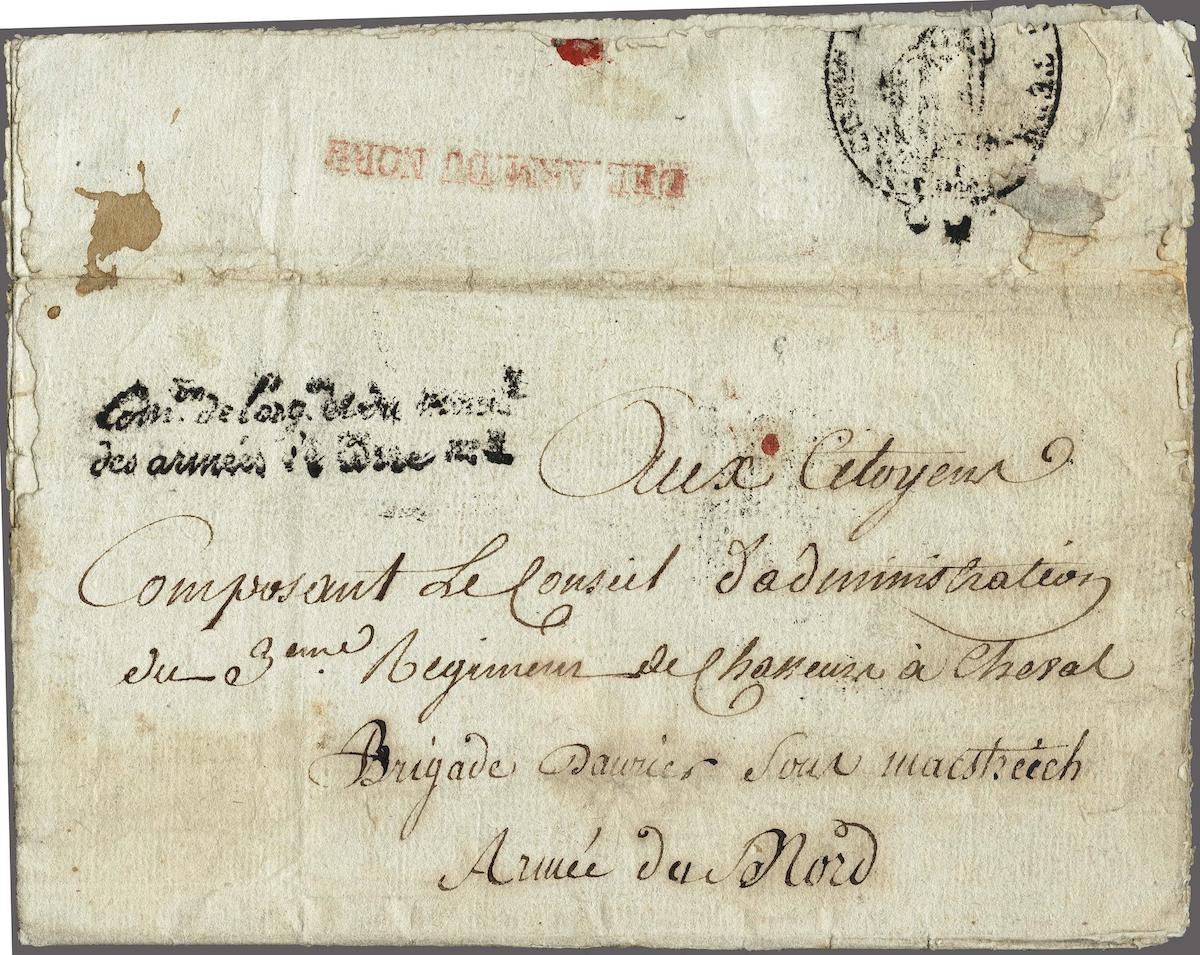 DEL. ARM. DU NORD
Com.on de l'org.on et du mouv.t
des armées de terre
Aux Citoyens
Composant Le Conseil d'administration
du 3eme Regiment de Chasseurs à Cheval
Brigade Daurier Sous maestreech
Armée du Nord